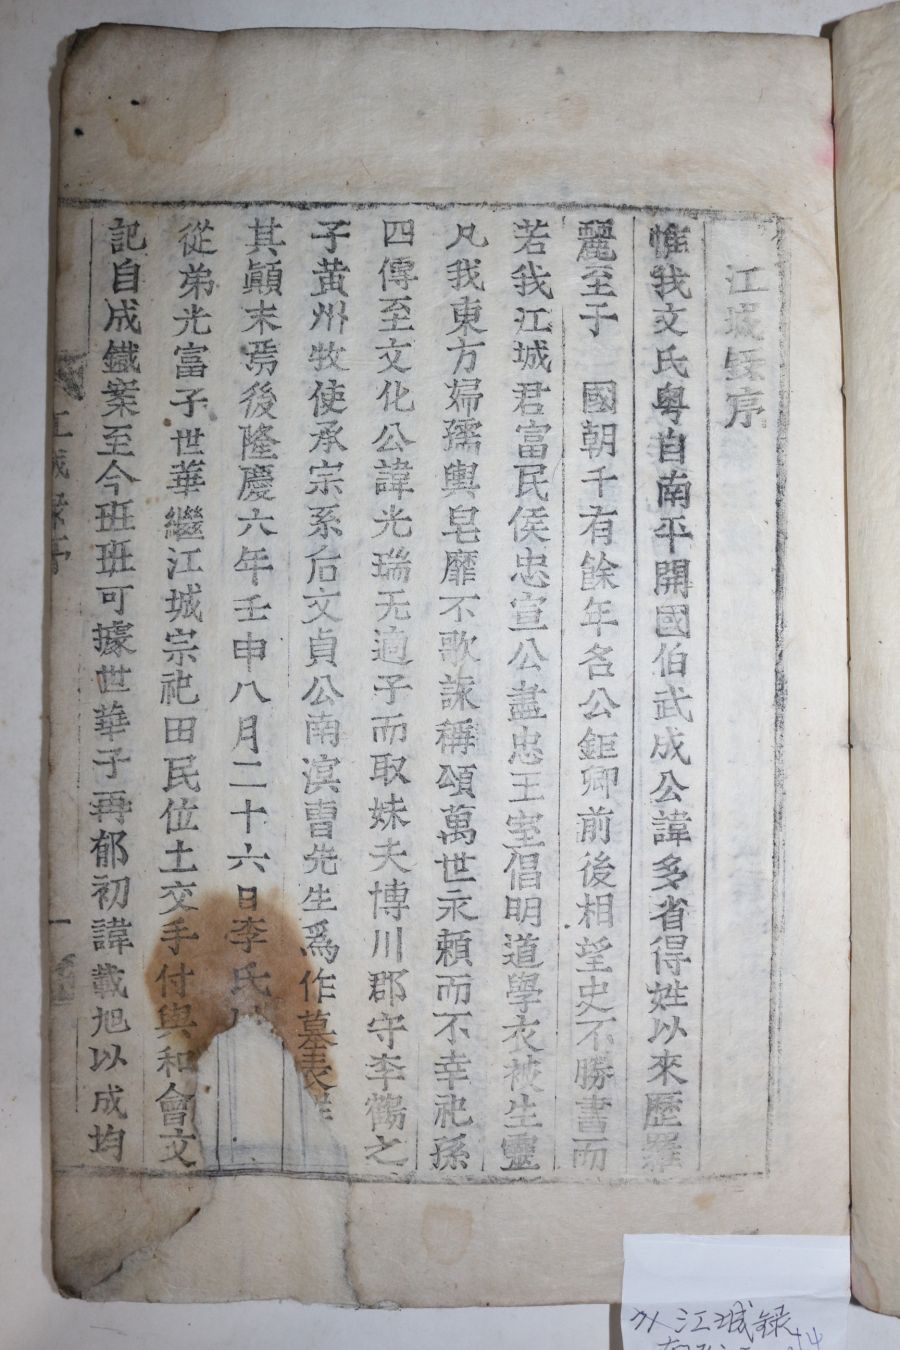 江城錄序
惟我文氏粤自南平開國伯武成公諱多省得姓以來歷羅
麗至于 國朝千有餘年名公鉅卿前後相望史不勝書而
若我江城君富民侯忠宣公盡忠王室倡明道學衣被生靈
凡我東方婦孺輿皂靡不歌詠稱頌萬世永賴而不幸祀孫
四傳至文化公諱光瑞无適子而取妹夫博川郡守李鶴之
子黃州牧使承宗系后文貞公南溟曺先生爲作墓表
其顚末焉後隆慶六年壬申八月二十六日李氏
從弟光富子世華繼江城宗祀田民位土交手付與和會文
記自成鐵案至今班班可據世華子再郁初諱載旭以成均
江城錄序
一
江城録